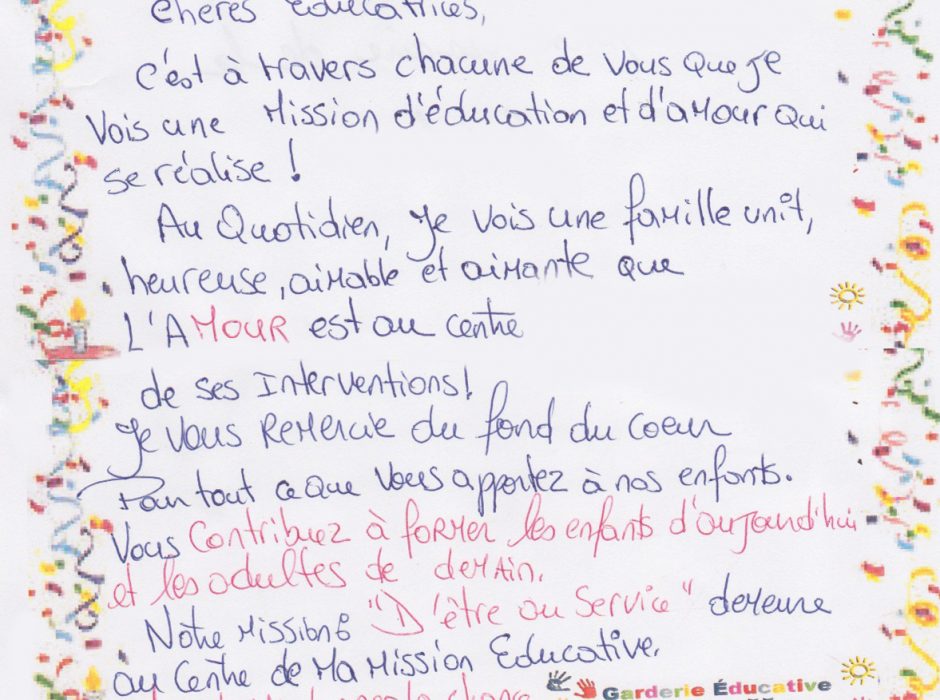 Chères Educatrices,
C'est à travers chacune de Vous que je
Vois une Mission d'éducation et d'amour qui
se réalise !
Au Quotidien, Je Vois une famille unit,
heureuse, aimable et aimante que
L'AMOUR est au centre
de ses Interventions!
Je Vous Remercie du fond du coeur
Pour tout ce que Vous apportez à nos enfants.
Vous Contribuez à former les enfants d'aujourd'hui
et les adultes de demain.
Notre Mission "D'être au Service" demeure
au Centre de Ma Mission Educative.
Garderie Éducative